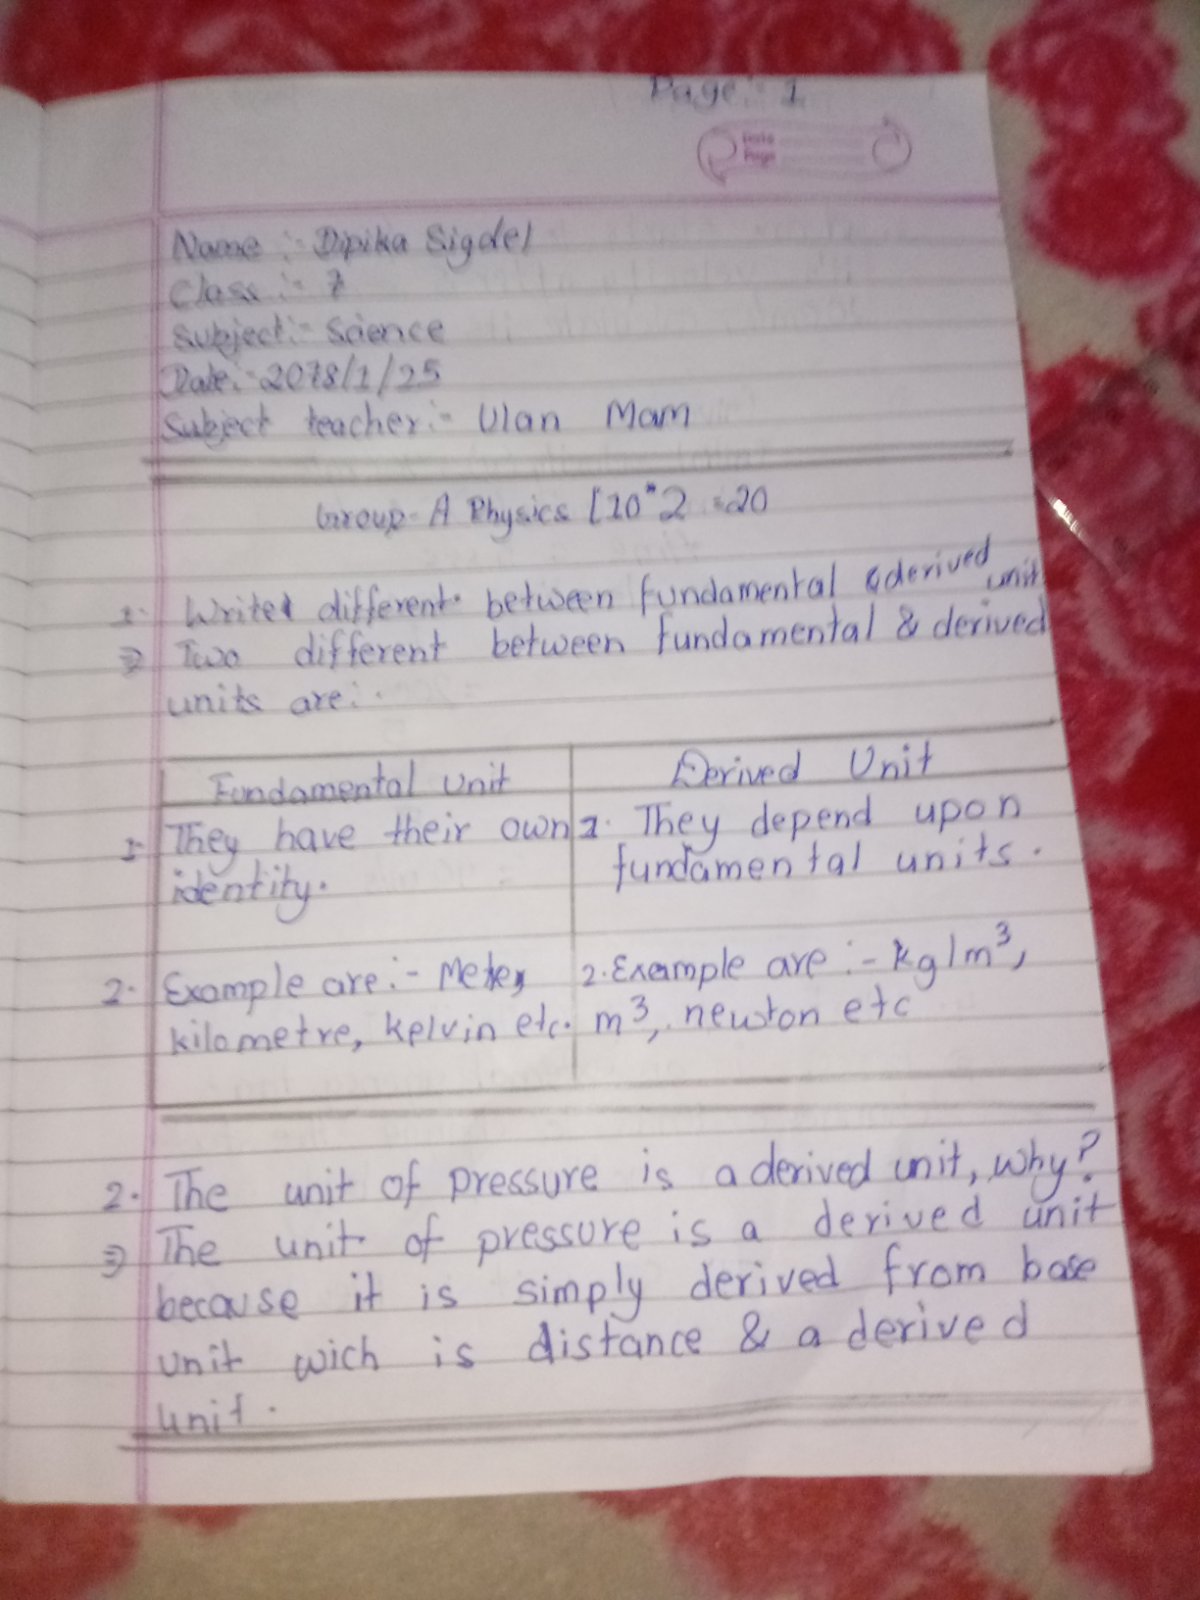 Page:- 1
Date
Page
Name :- Dipika Sigdel
Class :- 7
Subject:- Science
Date:- 2078/1/25
Subject teacher:- Ulan Mam
Group- A Physics [10*2 =20
1. Write different between fundamental & derived unit
⇒ Two different between fundamental & derived
units are:-
Fundamental Unit
Derived Unit
1. They have their own
identity.
1. They depend upon
fundamental units.
2. Example are:- Meter,
kilometre, kelvin etc.
2. Example are :- kg/m³,
m³, newton etc
2. The unit of pressure is a derived unit, why?
⇒ The unit of pressure is a derived unit
because it is simply derived from base
unit wich is distance & a derived
unit.